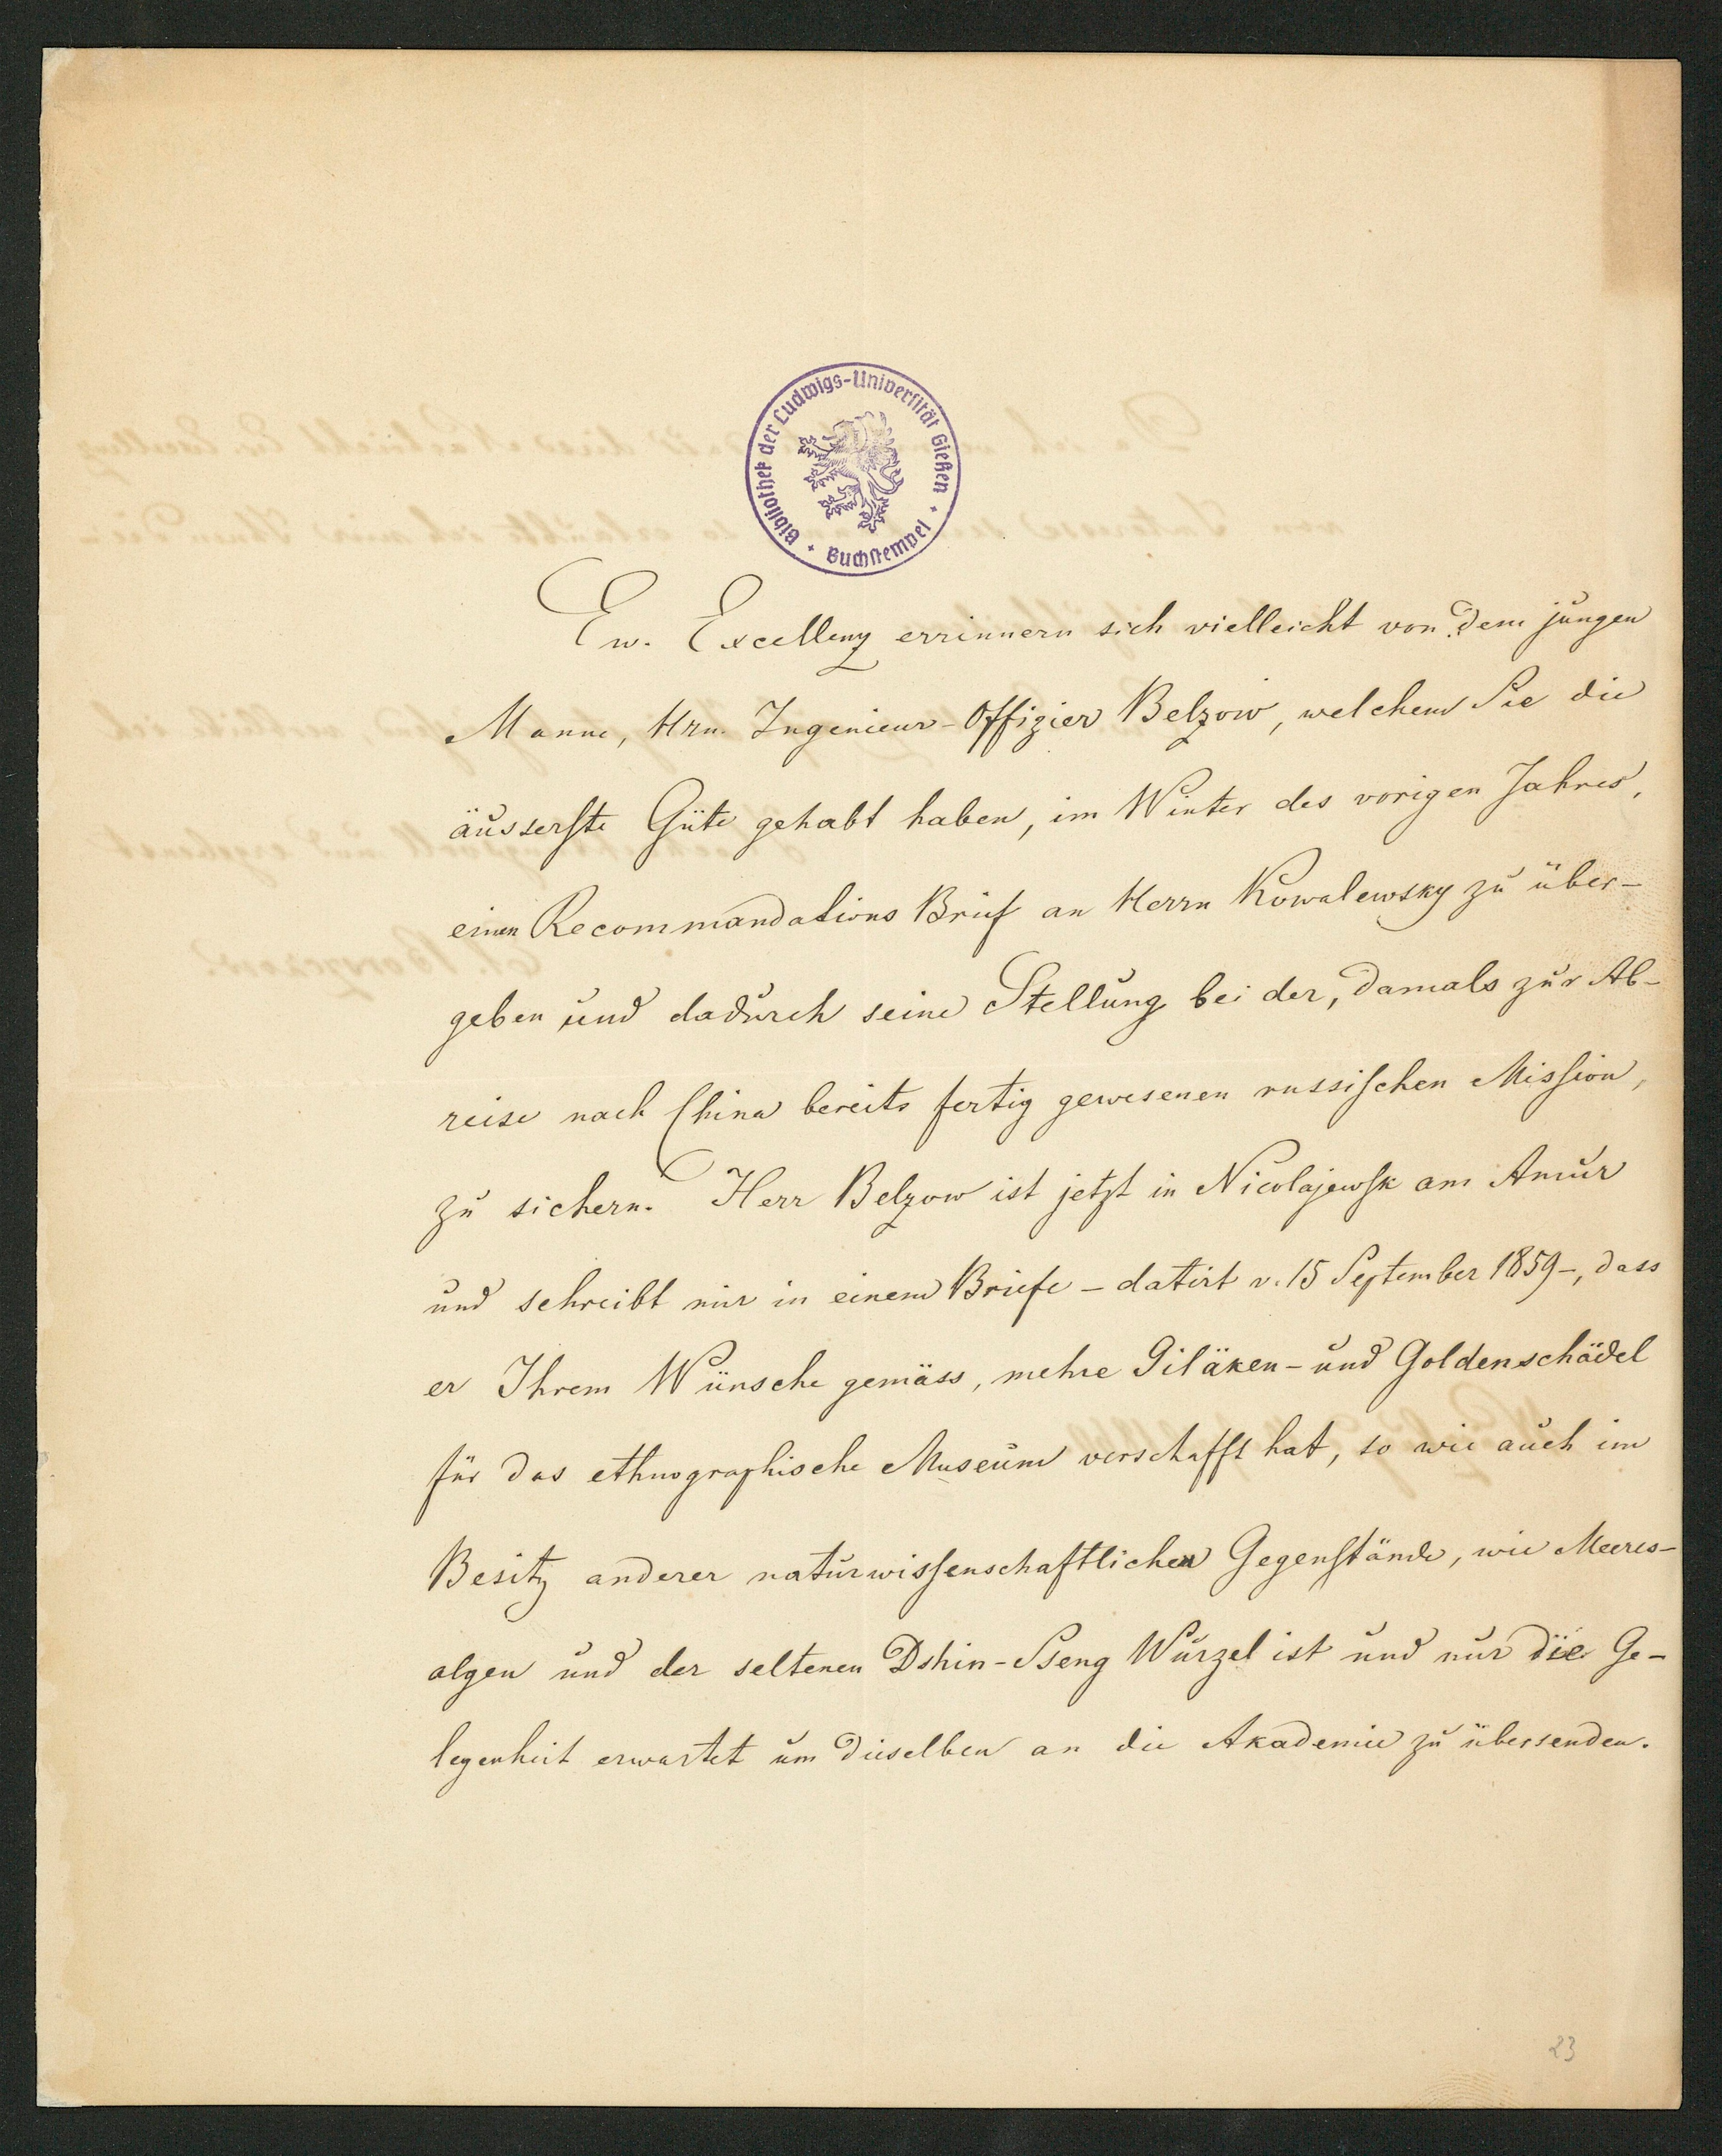 Bibliothek der Ludwigs-Universität Gießen
Buchstempel
Ew. Excellenz errinnern sich vielleicht von dem jungen
Manne, Hrn. Ingenieur-Offizier Belzow, welchem Sie die
äusserste Güte gehabt haben, im Winter des vorigen Jahres,
einen Recommandations Brief an Herrn Kowalewsky zu über-
geben und dadurch seine Stellung bei der, damals zur Ab-
reise nach China bereits fertig gewesenen russischen Mission,
zu sichern. Herr Belzow ist jetzt in Nicolajewsk am Amur
und schreibt mir in einem Briefe - datirt v. 15 September 1859-, dass
er Ihrem Wunsche gemäss, mehre Giläken- und Goldenschädel
für das ethnographische Museum verschafft hat, so wie auch im
Besitz anderer naturwissenschaftlicher Gegenstände, wie Meeres-
algen und der seltenen Dshin-Sseng Wurzel ist und nur die Ge-
legenheit erwartet um dieselben an die Akademie zu übersenden.
23